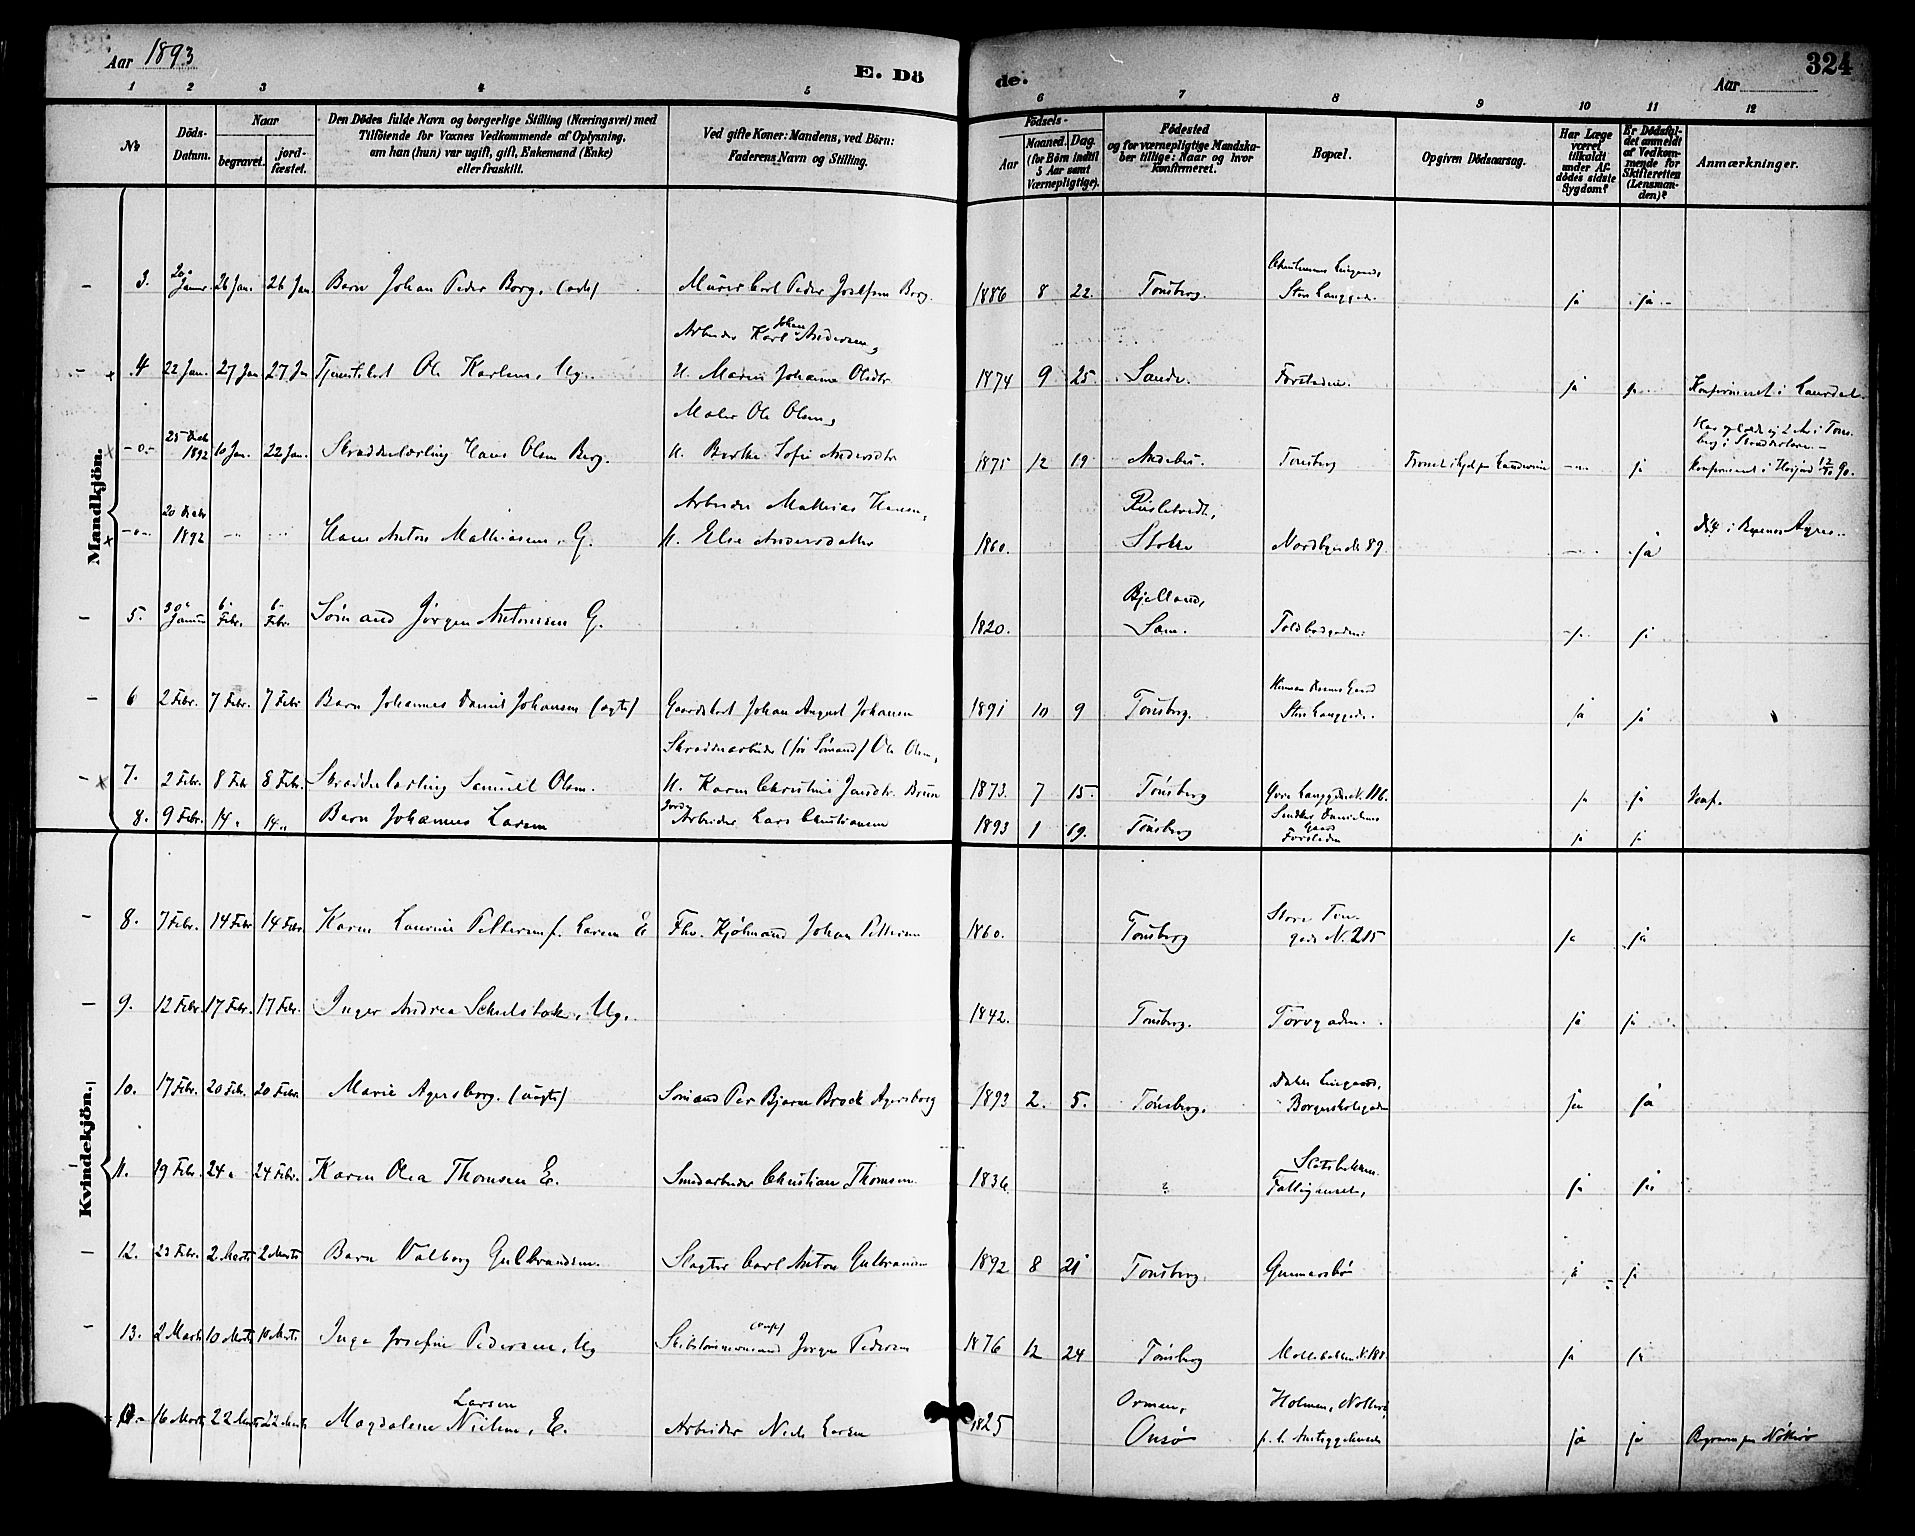 Aar 1893
E. Dö
de.
Aar
324
1 2 3 4 5 6 7 8 9 10 11 12
No
Döds-
Datum.
Naar
begravet.
jord-
fæstet.
Den Dödes fulde Navn og borgerlige Stilling (Næringsvei) med
Tilföiende for Voxnes Vedkommende af Oplysning,
om han (hun) var ugift, gift, Enkemand (Enke)
eller fraskilt.
Ved gifte Koner: Mandens, ved Börn:
Faderens Navn og Stilling.
Födsels-
Aar
Maaned.
Dag
(for Börn indtil
5 Aar samt
Værnepligtige).
Födested
og for værnepligtige Mandska-
ber tillige: Naar og hvor
konfirmeret.
Bopæl.
Opgiven Dödsaarsag.
Har Læge
været
tilkaldt
under Af-
dödes sidste
Sygdom?
Er Dödsfal-
det anmeldt
af Vedkom-
mende for
Skifteretten
(Lensman-
den)?
Anmærkninger.
Mandkjön.
3. 20 Januar 26 Jan. 26 Jan. Barn Johan Peder Borg, (ægte) Murer Carl Peder Josefsen Borg. 1886 8 22. Tönsberg. Store Langgade. ja ja
Arbeider Karl Johan Andersen,
4 22 Jan. 27 Jan 27 Jan Tjenestekarl Ole Karlsen, Ug. H. Maren Johanne Olsdtr 1874 9 25. Sande. Forstaden. ja ja Konfirmeret i Laurdal.
Maler Ole Olsen,
-o- 25 Decbr 1892 10 Jan. 22 Jan. Skrædderlærling Hans Olsen Berg. H. Berthe Sofie Andersdtr 1875 12 19 Andebu. Tönsberg ja
Arbeider Mathias Hansen,
-o- 20 Decbr 1892 Hans Anton Mathiasen, G. H. Elise Andersdatter 1860. Stokke Nordbyen No 89. ja Död i Buenos Ayres.
5. 30 Januar 6 Febr. 6 Febr. Sömand Jörgen Antonsen G. 1820. Bjelland, Sem. Toldbodgaden. ja ja
6 2 Febr. 7 Febr. 7 Febr Barn Johannes Daniel Johansen (ægte) Gaardskarl Johan August Johansen 1891 10 9 Tönsberg. Store Langgade. ja ja
Skrædderarbeider (för Sömand) Ole Olsen,
7. 2 Febr. 8 Febr 8 Febr. Skrædderlærling Samuel Olsen. H. Karen Christine Jensdtr. Bruun 1873. 7 15. Tönsberg ja ja Konf.
8. 9 Febr. 14 " 14 " Barn Johannes Larsen Jord Arbeider Lars Christiansen 1893 1 19. Tönsberg Forstaden ja ja
Kvindekjön.
8. 7 Febr. 14 Febr 14 Febr Karen Laurine Pettersen f. Larsen E Fhv. Kjöbmand Johan Pettersen 1860. Tönsberg No 215 ja ja
9. 12 Febr. 17 Febr. 17 Febr. Inger Andrea Schulstock, Ug. 1842. Tönsberg. Torvgaden. ja ja
10. 17 Febr. 20 Febr. 20 Febr. Marie Agersborg. (uægte) Sömand Per Bjarne Brock Agersborg 1893 2. 5. Tönsberg. Borgerskolegaden ja ja
11. 19 Febr. 24 " 24 Febr. Karen Olea Thomsen E. Smedarbeider Christian Thomsen 1836. " Slotsbakken. Fattighuset, ja ja
12. 23 Febr. 2 Marts 2 Marts Barn Valborg Gulbrandsen. Slagter Carl Anton Gulbransen 1892 8 21 Tönsberg. Gunnarsbö ja ja
13. 2 Marts 10 Marts 10 Marts Inga Josefine Pedersen, Ug Skibstömmermand Jörgen Pedersen 1876 12 24 Tönsberg Möllebakken No 188. ja ja
16 Marts 22 Marts 22 Marts Magdalene Larsen Nielsen, E. Arbeider Niels Larsen 1825 Onsö Holmen, Nötterö ja ja Begraven paa Nötterö